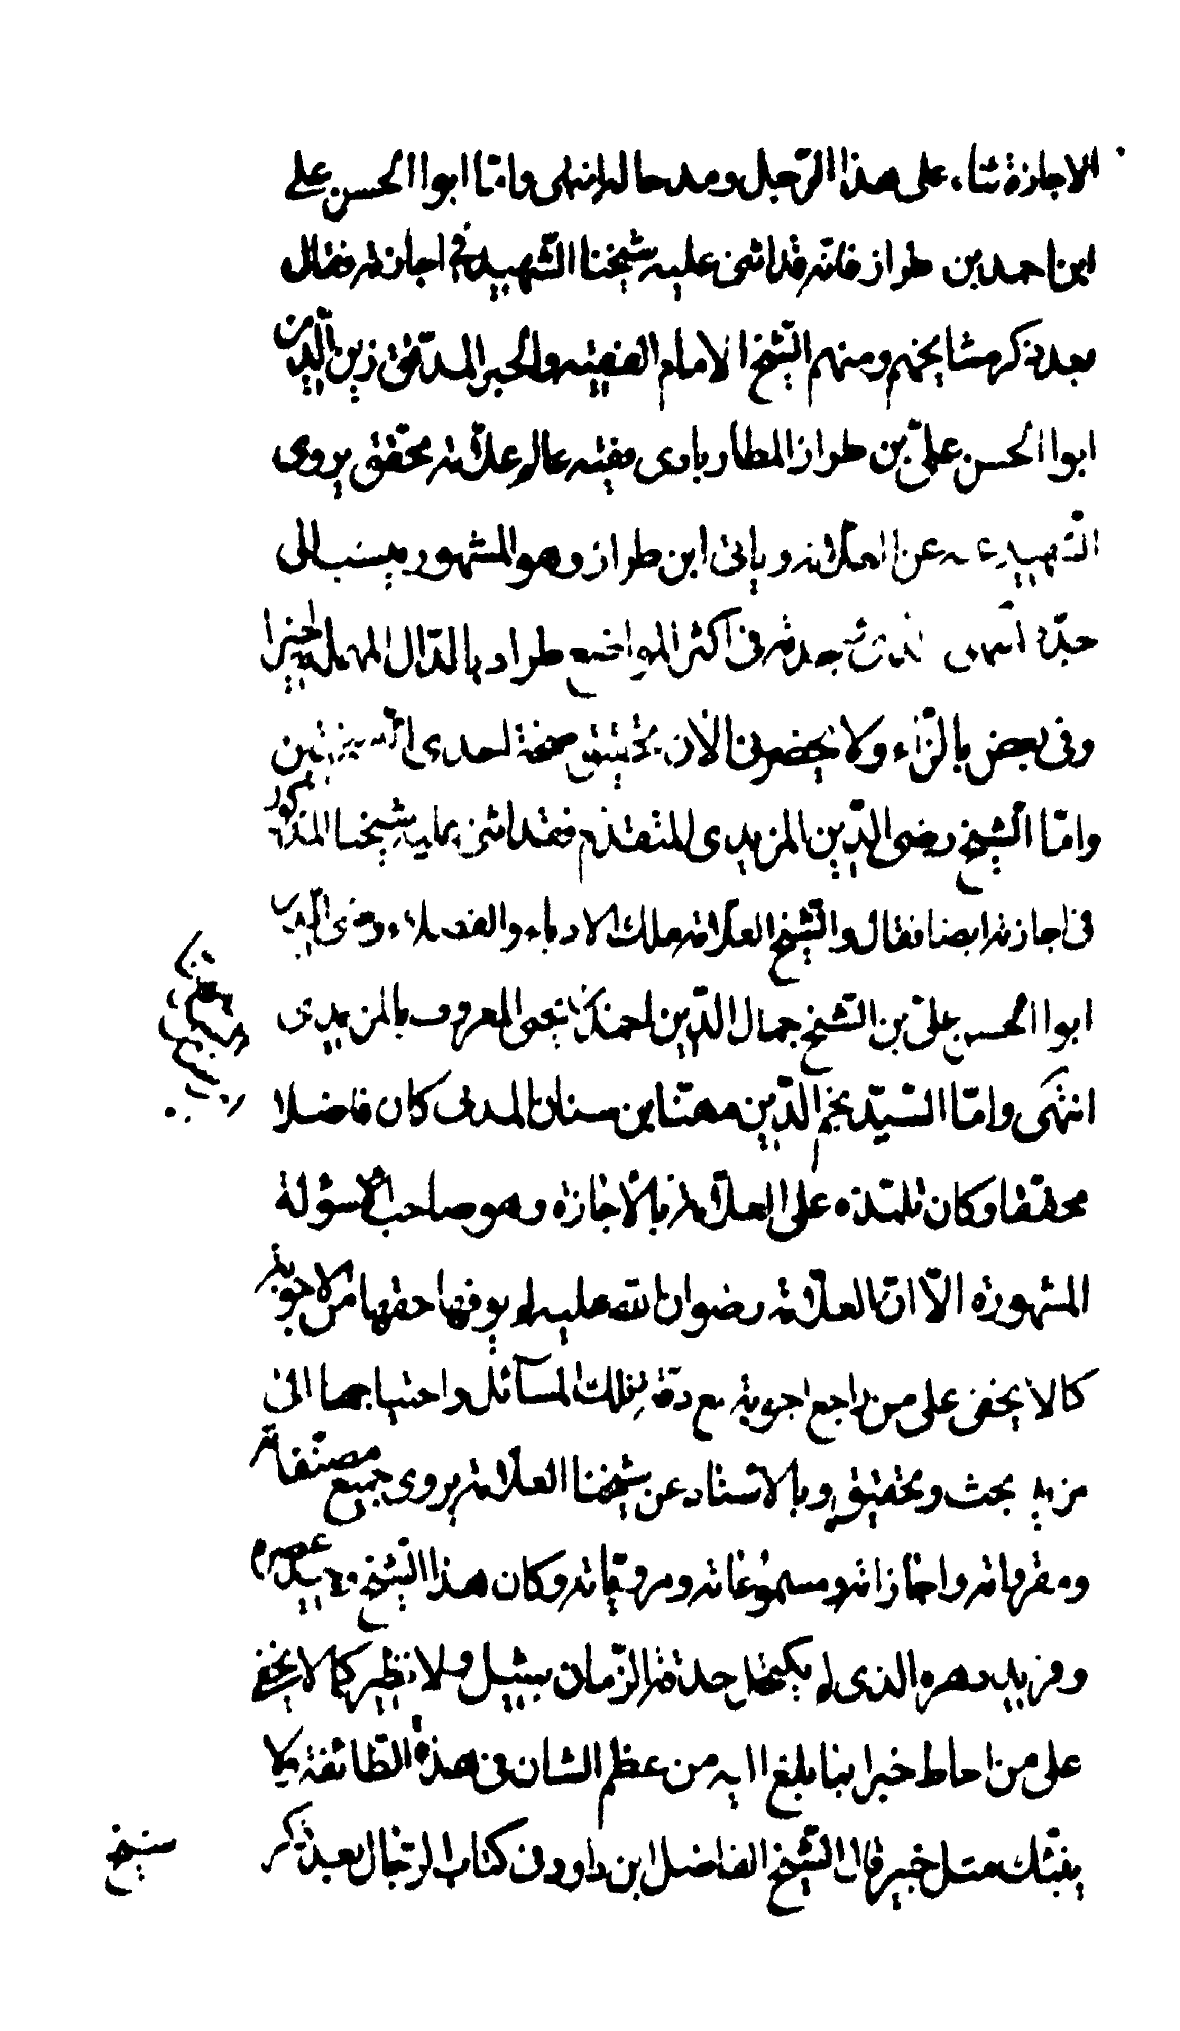 الاجازة ثناء على هذا الرّجل ومدحا له انتهى وامّا ابوا الحسن علي
ابن احمد بن طراز فانّه قد اثنى عليه شيخنا الشّهيد في اجازته فقال
بعد ذكر مشايخهم ومنهم الشّيخ الامام الفقيه والحبر المدقّق زين الدّين
ابوا الحسن علىّ بن طراز المطاربادى فقيه عالم علّامة محقّق يروى
الشّهيد عنه عن العلّامة وياتى ابن طراز وهو المشهور بنسب الى
جدّه انتهى جدّه فى اكثر المواضع طراد بالدّال المهملة اخيرا
وفى بعض بالزّاء ولا يحضرنى الان تحقيق صحّة احدى النسختين
وامّا الشّيخ رضى الدّين المزيدى المتقدّم فقد اثنى عليه شيخنا المذكور
فى اجازته ايضا فقال والشّيخ العلّامة ملك الادباء والفضلاء رضى الدّين
ابوا الحسن علىّ بن الشّيخ جمال الدّين احمد بن يحيى المعروف بالمزيدى
انتهى وامّا السّيّد نجم الدّين مهنّا بن سنان المدنى كان فاضلا
محقّقا وكان تلمّذه على العلّامة بالاجازة وهو صاحب الاسؤلة
المشهورة الّا انّ العلّامة رضوان اللّه عليه لم يوفها حقها من الاجوبة
كما لا يخفى على من راجع اجوبته مع دقة تلك المسآئل واحتياجها الى
مزيد بحث وتحقيق وبالاسناد عن شيخنا العلّامة يروى جميع مصنّفاته
ومقرواته واجازاته ومسموعاته ومرويّاته وكان هذا الشّيخ وحيد عصره
وفريد دهره الذى لم يكتحل حدقة الزّمان بمثيل ولا نظير كما لا يخفى
على من احاط خبرا بما بلغ اليه من عظم الشان فى هذه الطّائفة ولا
ينبئك مثل خبير قال الشّيخ الفاضل ابن داود فى كتاب الرّجال بعد ذكر